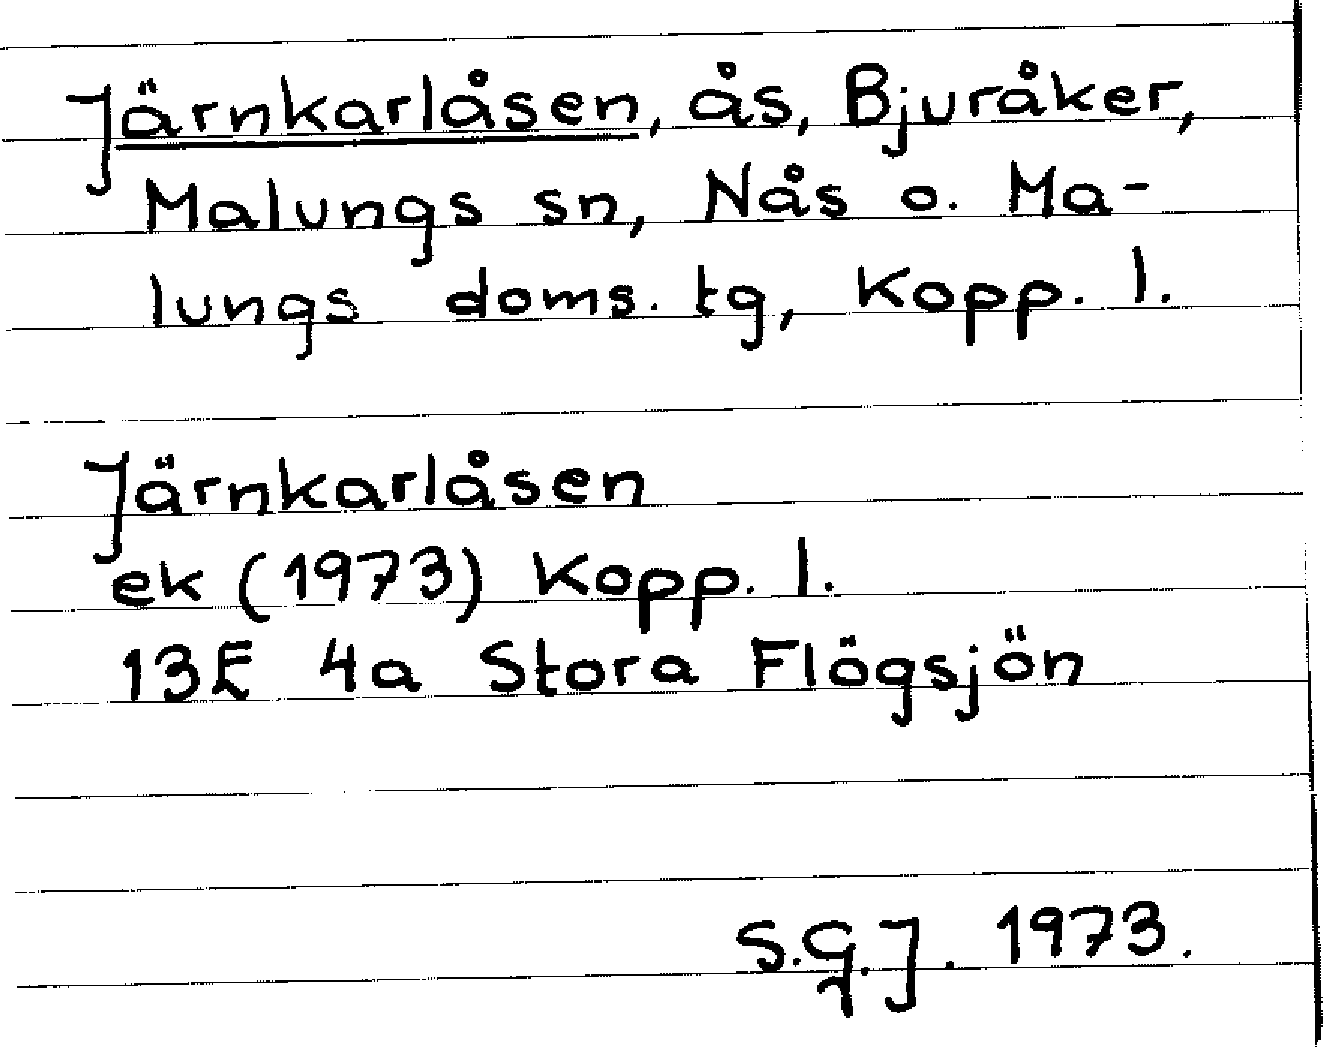 Järnkarlåsen, ås, Bjuråker,
Malungs sn, Nås o. Ma-
lungs doms. tg, Kopp. l.
Järnkarlåsen
ek (1973) Kopp. l.
13E 4a Stora Flögsjön
S.G.J. 1973.